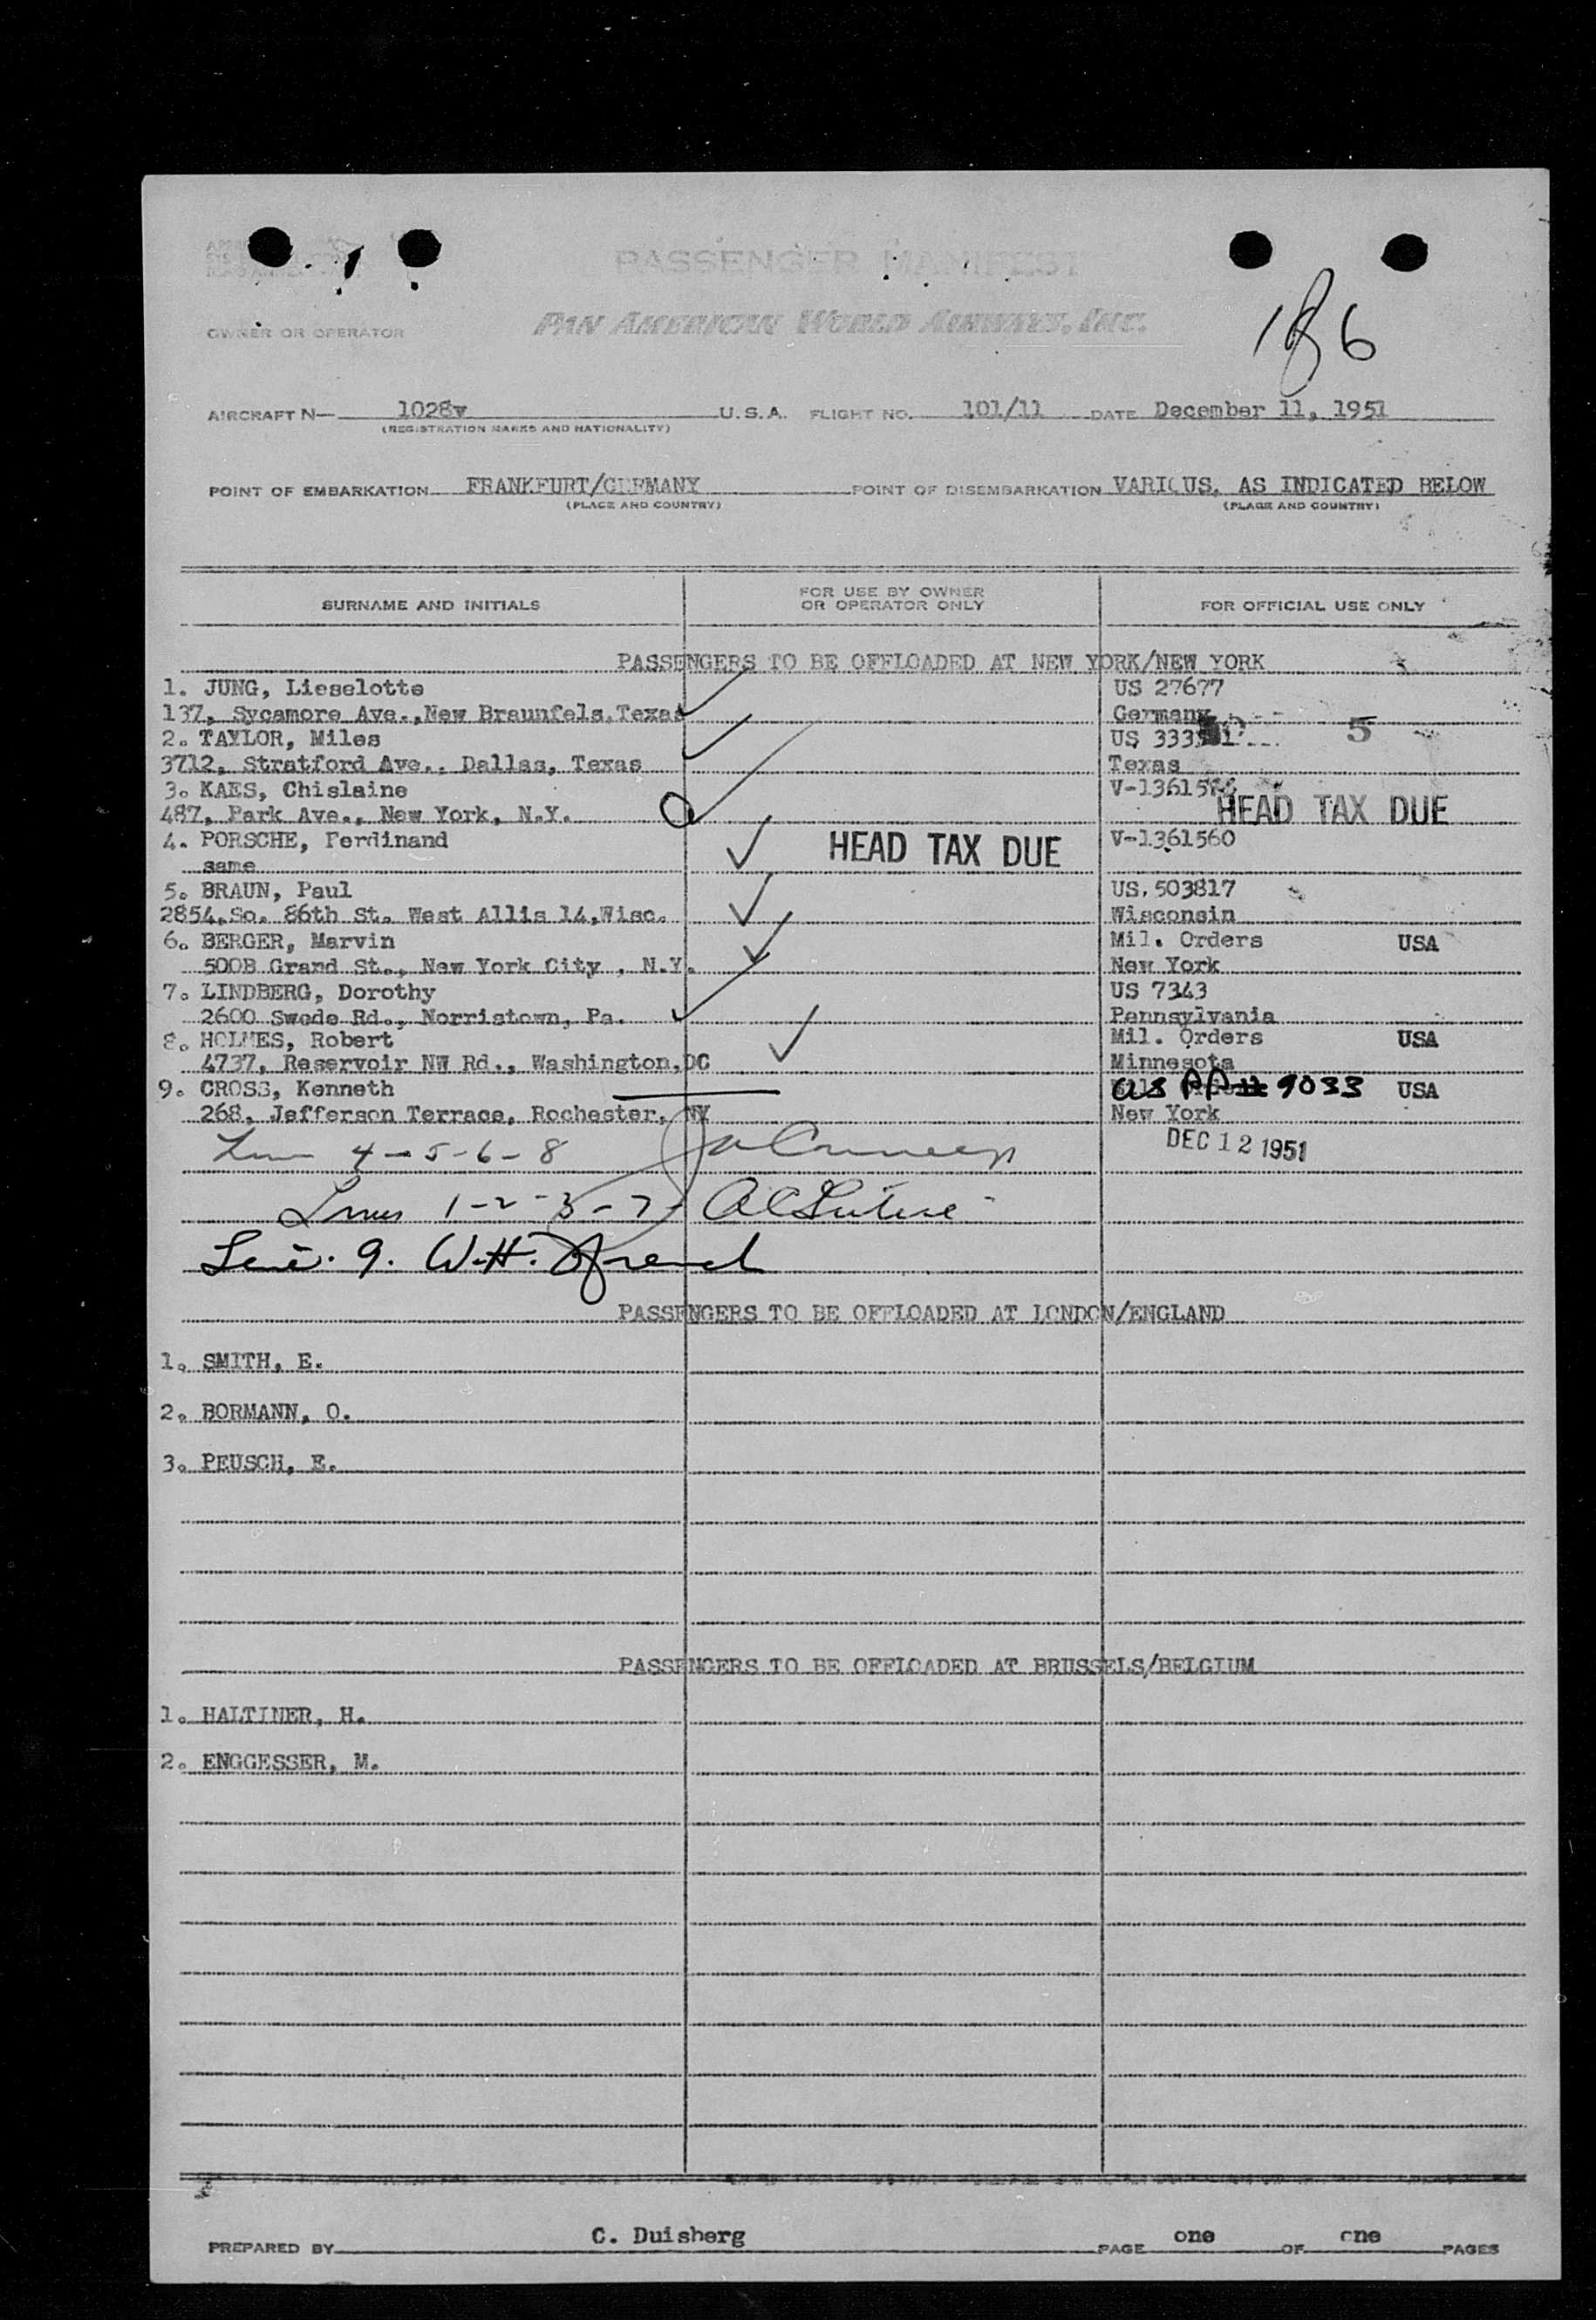 PASSENGER MANIFEST
OWNER OR OPERATOR PAN AMERICAN WORLD AIRWAYS, INC.
186
AIRCRAFT N— 1028v U.S.A. FLIGHT NO. 101/11 DATE December 11, 1951
(REGISTRATION MARKS AND NATIONALITY)
POINT OF EMBARKATION FRANKFURT/GERMANY POINT OF DISEMBARKATION VARIOUS, AS INDICATED BELOW
(PLACE AND COUNTRY) (PLACE AND COUNTRY)
SURNAME AND INITIALS FOR USE BY OWNER OR OPERATOR ONLY FOR OFFICIAL USE ONLY
PASSENGERS TO BE OFFLOADED AT NEW YORK/NEW YORK
1. JUNG, Lieselotte US 27677
137, Sycamore Ave.,New Braunfels,Texas Germany
2. TAYLOR, Miles US 5
3712, Stratford Ave., Dallas, Texas Texas
3. KAES, Chislaine
487, Park Ave., New York, N.Y. HEAD TAX DUE
4. PORSCHE, Ferdinand HEAD TAX DUE V-1361560
same
5. BRAUN, Paul US.503817
2854,So. 86th St. West Allis 14,Wisc. Wisconsin
6. BERGER, Marvin Mil. Orders USA
500B Grand St., New York City , N.Y. New York
7. LINDBERG, Dorothy US 7343
2600 Swede Rd., Norristown, Pa. Pennsylvania
8. HOLMES, Robert Mil. Orders USA
4737, Reservoir NW Rd., Washington,DC Minnesota
9. CROSS, Kenneth US PP 9033 USA
268, Jefferson Terrace, Rochester, NY New York
4-5-6-8 DEC 12 1951
1-2-3-7
9. W.H. French
PASSENGERS TO BE OFFLOADED AT LONDON/ENGLAND
1. SMITH, E.
2. BORMANN, O.
3. PEUSCH, E.
PASSENGERS TO BE OFFLOADED AT BRUSSELS/BELGIUM
1. HALTINER, H.
2. ENGGESSER, M.
PREPARED BY C. Duisberg PAGE one OF one PAGES